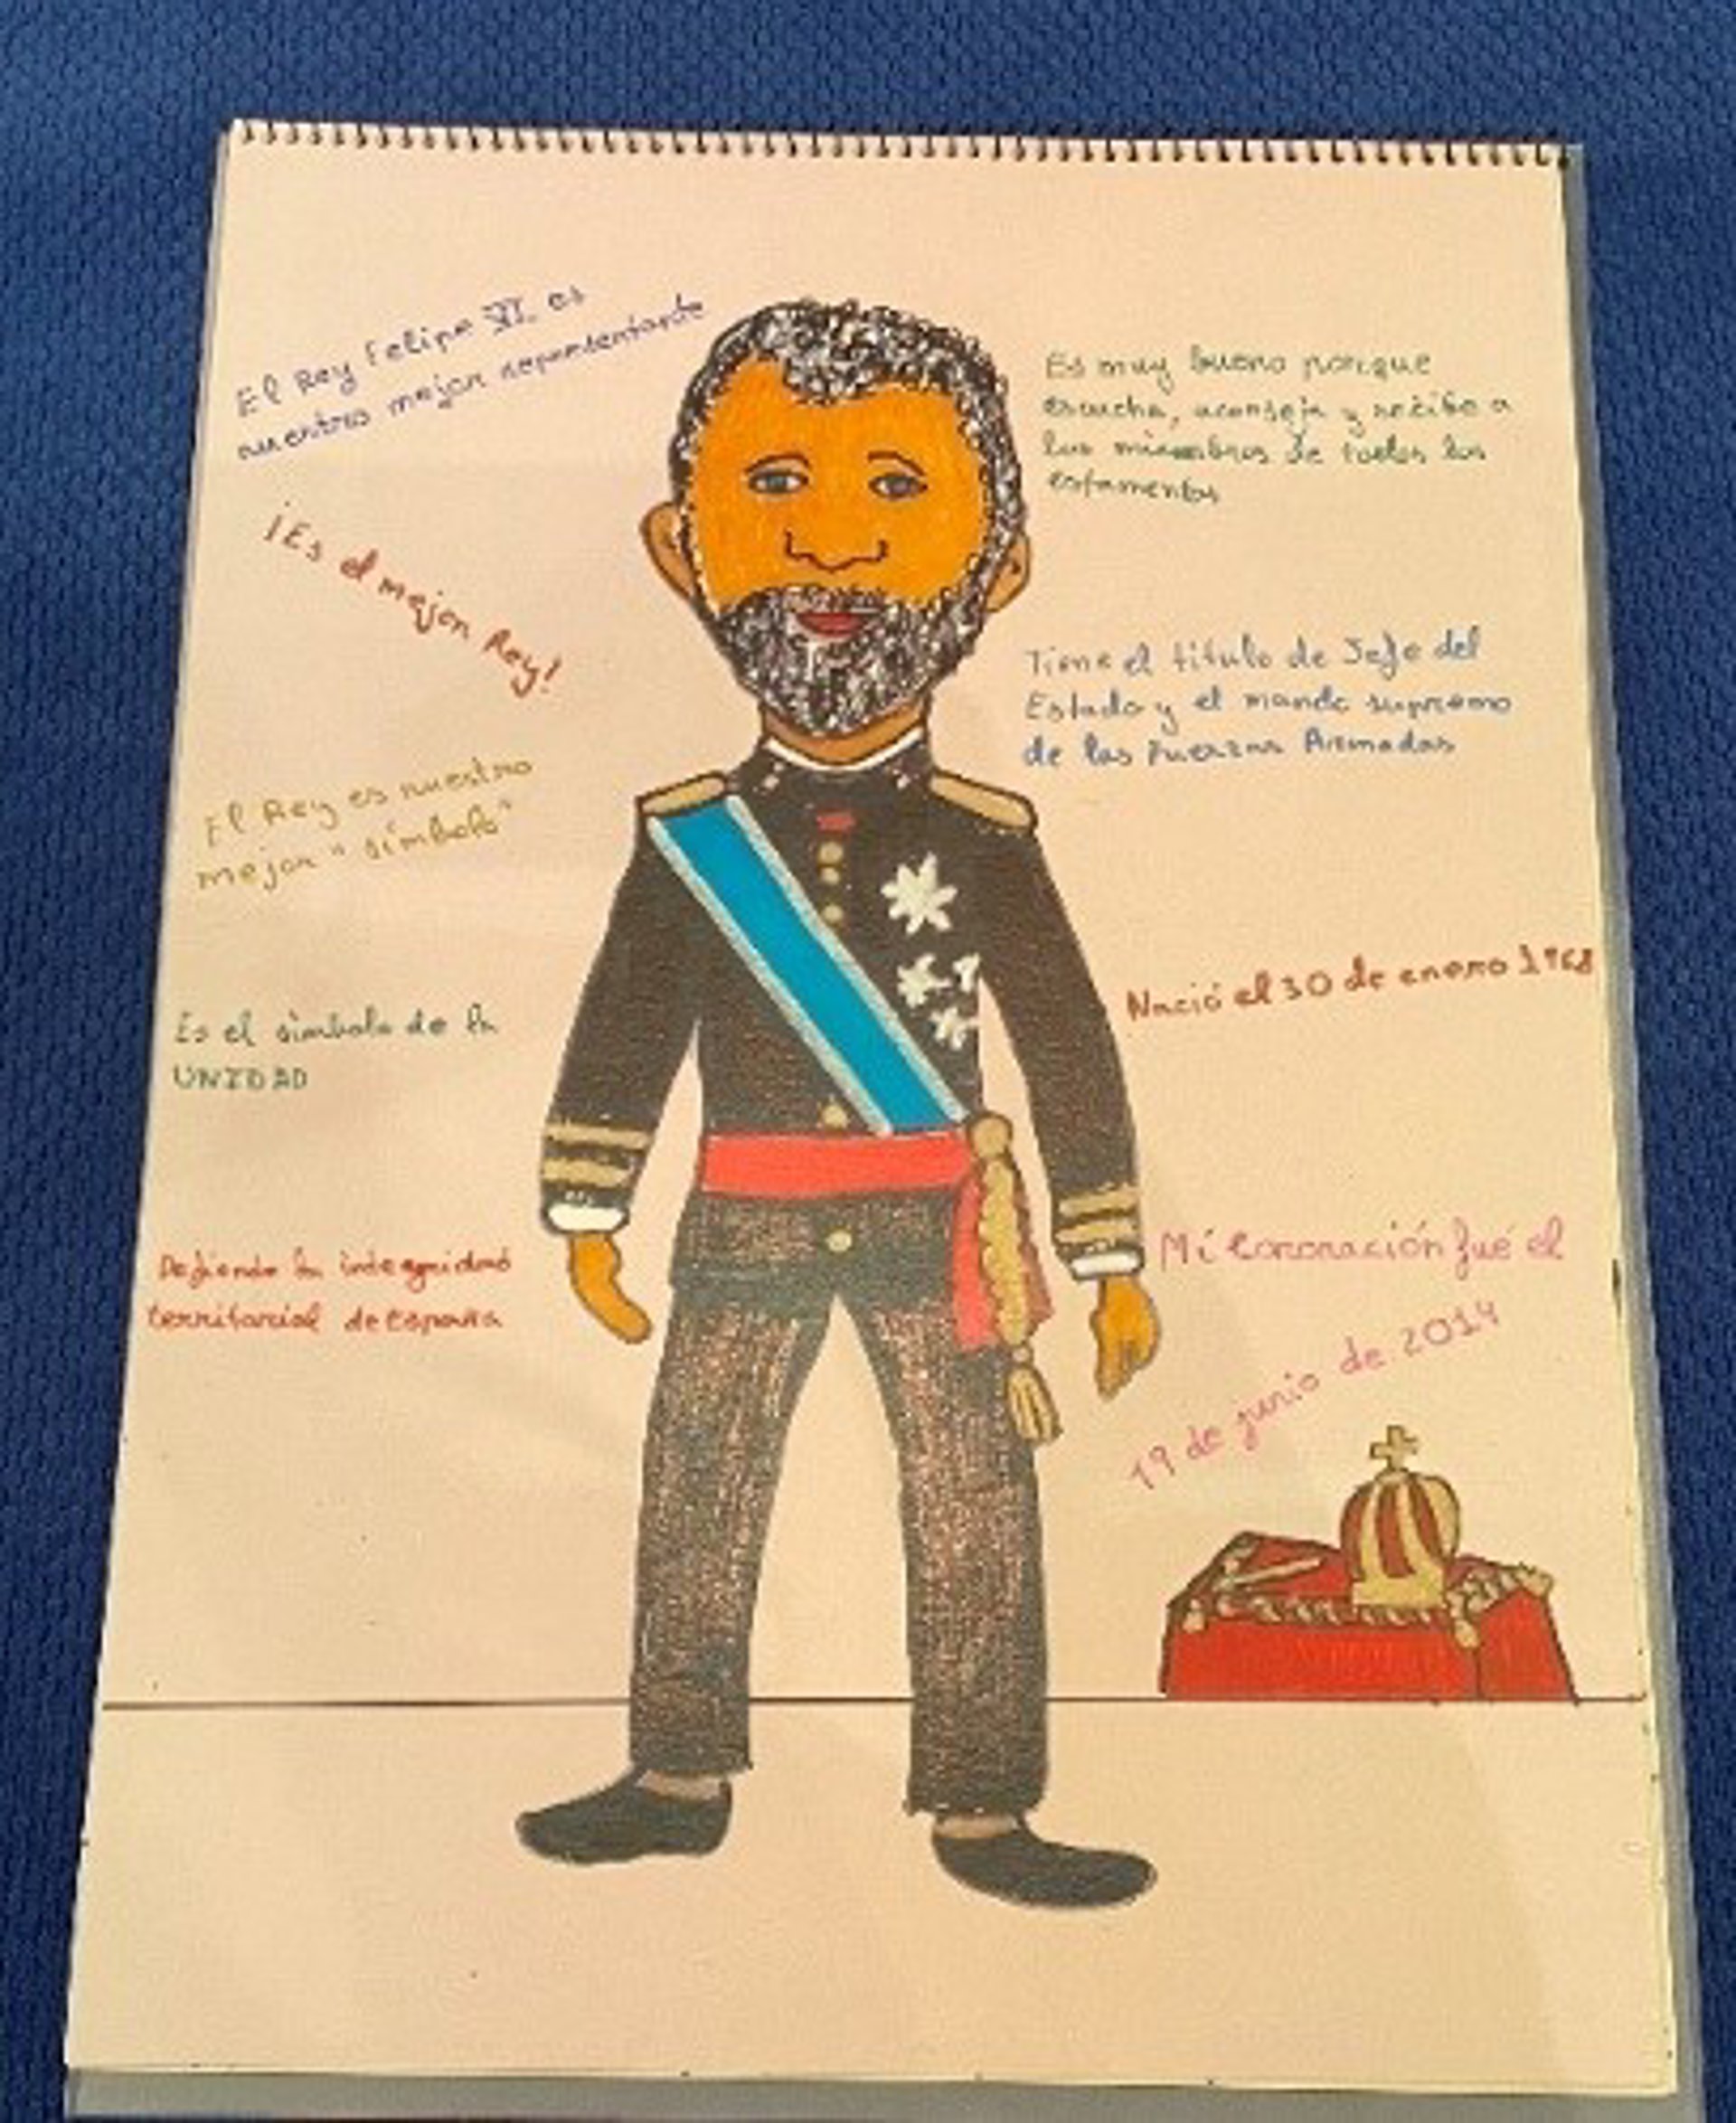 El Rey Felipe VI es
nuentros mejor representante
¡Es el mejor Rey!
El Rey es nuestro
mejor "símbolo"
Es el símbolo de la
UNIDAD
Defiende la integridad
territorial de España
Es muy bueno porque
escucha, aconseja y recibe a
los miembros de todos los
estamentos
Tiene el título de Jefe del
Estado y el mando supremo
de las Fuerzas Armadas
Nació el 30 de enero 1968
Mi Coronación fué el
19 de junio de 2014